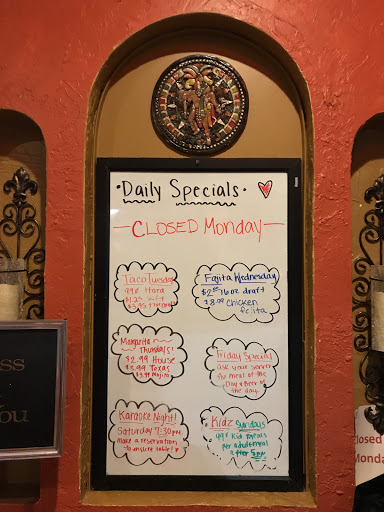 Daily Specials
CLOSED Monday
Taco Tuesday
99¢ Hard
$1.25 Soft
Fajita Wednesday
16 oz draft
Chicken
fajita
Margarita
Thursdays!
$2.99 House
$3.99 Texas
$3.99 Mojito
Friday Specials
ask your server
for meal of the
Day & Beer of
the day.
Karaoke Night!
Saturday 7:30pm
make a reservation
to ensure table!
Kidz Sundays
99¢ Kid Meals
Per adult meal
after 5pm
ss
You
Closed
Monda